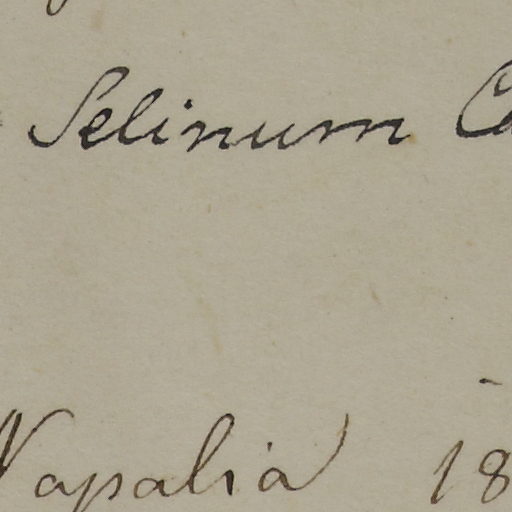 Selinum Ca
Napalia 18